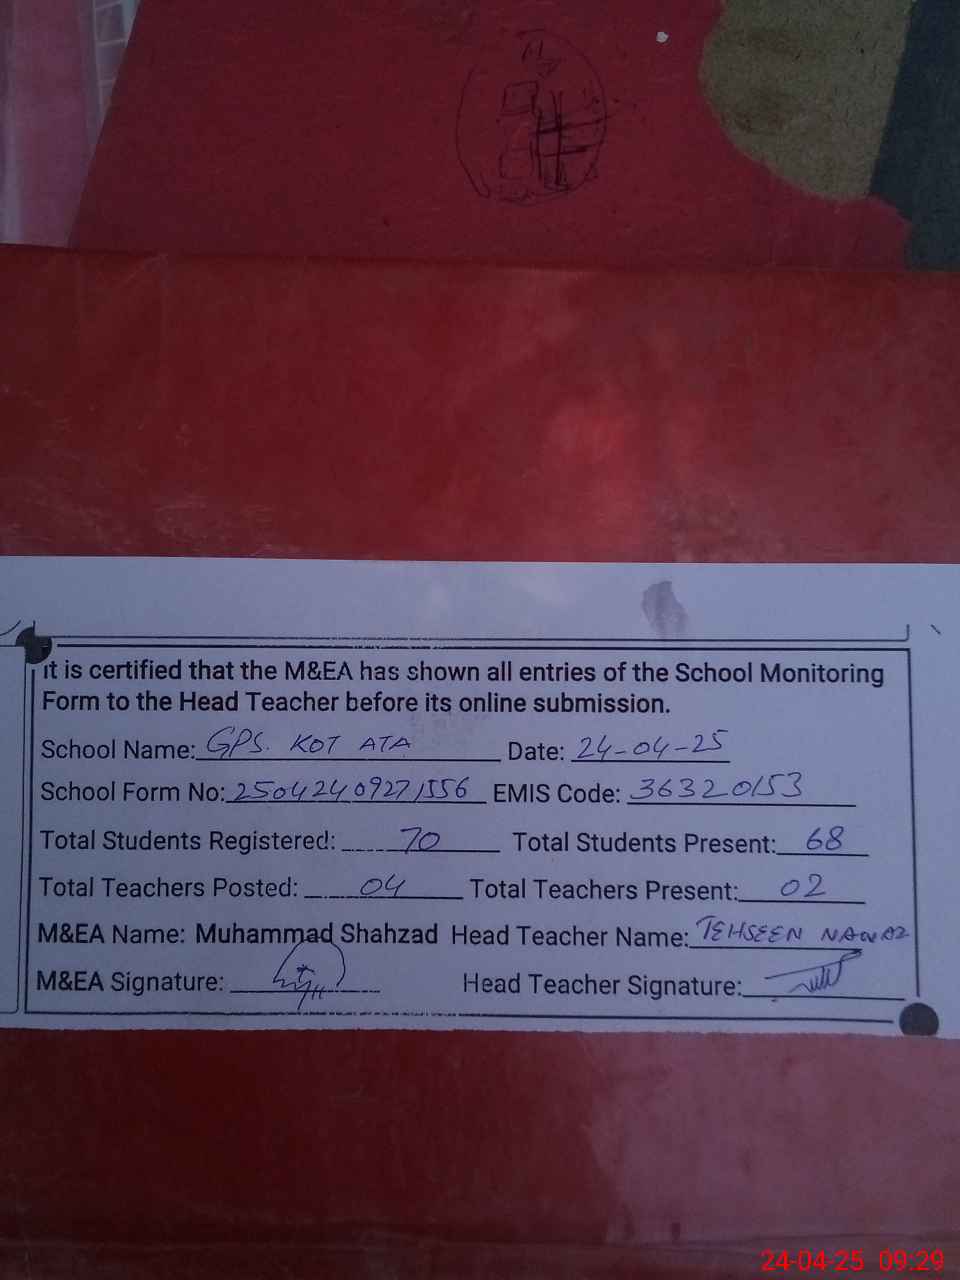 It is certified that the M&EA has shown all entries of the School Monitoring
Form to the Head Teacher before its online submission.
School Name: GPS. KOT ATA Date: 24-04-25
School Form No: 25042409271556 EMIS Code: 36320153
Total Students Registered: 70 Total Students Present: 68
Total Teachers Posted: 04 Total Teachers Present: 02
M&EA Name: Muhammad Shahzad Head Teacher Name: TEHSEEN NAWAZ
M&EA Signature: Head Teacher Signature:
24-04-25 09:29